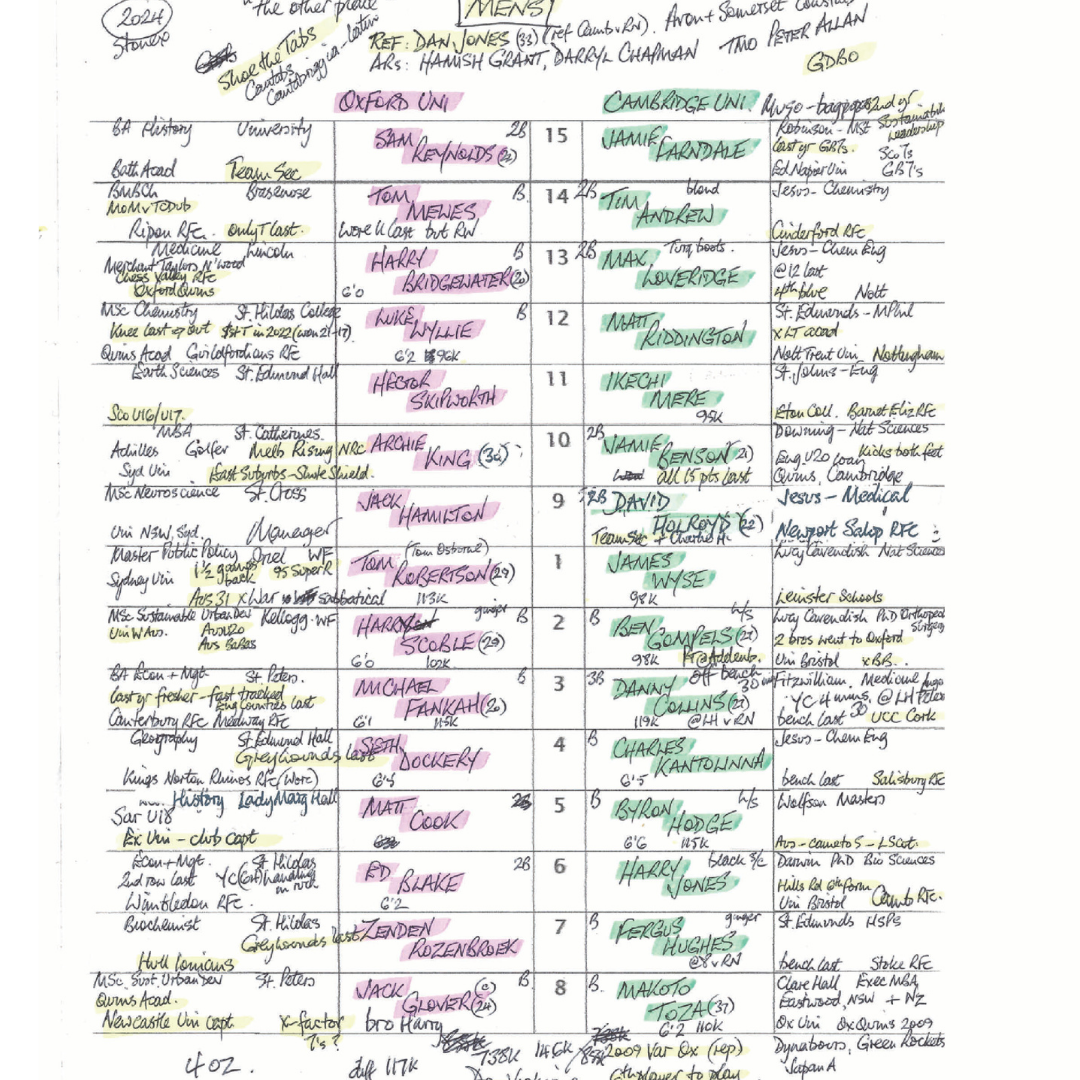 the other
2024
MENS
Stonex
Shoe the Tabs
REF: DAN JONES (33) (ref Camb v RN). Avon + Somerset
ARs: HAMISH GRANT, DARRYL CHAPMAN TMO PETER ALLAN
GDBO
OXFORD UNI CAMBRIDGE UNI.
BA History University
Bath Acad Team Sec
SAM REYNOLDS 2B
15
JAMIE FARNDALE
Robinson - MSc Sustainable Leadership
last yr GB7s. Sco7s
Ed Napier Uni GB7's
BMBCh Brasenose
MoM v TCDub
Ripon RFC. only T last.
TOM MEWES B.
Wore 11 last but RW
14
2B TIM ANDREW blond
Jesus - Chemistry
Cinderford RFC
Medicine Lincoln
Merchant Taylors N'wood
Chess Valley RFC
Oxford Quins
HARRY BRIDGEWATER B
6'0
13
2B MAX LOVERIDGE Turq boots.
Jesus - Chem Eng
@12 last
4th blue Nott
MSc Chemistry St. Hildas College
Knee last op out 1st T in 2022 (won 21-17)
Quins Acad Guildfordians RFC
LUKE WYLLIE
6'2 96K
12
MATT RIDDINGTON
St. Edmunds - MPhil
x LT acad
Nott Trent Uni - Nottingham
Earth Sciences St. Edmund Hall
Sco U16/U17.
HECTOR SKIPWORTH
11
IKECHI MERE
95K
St. Johns - Eng
Eton Coll. Barnet Eliz RFC
MBA St. Catherines.
Achilles Golfer Melb Rising NRC
Syd Uni East Suburbs - Shute Shield.
ARCHIE KING
10
2B JAMIE BENSON (21)
all 15 pts last
Downing - Nat Sciences
Eng U20 loan Kicks both feet
Quins, Cambridge
MSc Neuroscience St. Cross
Uni NSW, Syd. Manager
JACK HAMILTON
9
2B DAVID HOLROYD (22)
Team Sec + Charlie H.
Jesus - Medical
Newport Salop RFC
Master Public Policy Oriel WF
Sydney Uni 1 1/2 games back 95 SuperR
Aus 31 x War sabbatical
TOM ROBERTSON (29) (Tom Osborne)
113K
1
JAMES WYSE
98K
Lucy Cavendish Nat Sciences
Leinster Schools
MSc Sustainable Urban Dev Kellogg - WF
Uni W Aus. Aus U20
Aus BaBas
HARRY SCOBLE ginger B
6'0 102K
2
BEN GOMPELS h/s
98K @ Addenb.
Lucy Cavendish PhD Orthoped Surgery
2 bros went to Oxford
Uni Bristol xBB.
BA Econ + Mgt St Peters.
last yr fresher - fast tracked
Eng Counties last
Canterbury RFC Medway RFC
MICHAEL FANKAH B
6'1 115K
3
3B DANNY COLLINS off bench
119K @LH v RN
Fitzwilliam, Medicine
YC 4 mins. @LH
bench last UCC Cork
Geography St. Edmund Hall
Greyhounds last
Kings Norton Rhinos RFC (Worc)
SETH DOCKERY
4
B CHARLES KANTOLINNA
6'5
Jesus - Chem Eng
bench last Salisbury RFC
History Lady Marg Hall
Sar U18
Ex Uni - club capt
MATT COOK
5
B BYRON HODGE h/s
6'6 115K
Wolfson Masters
Aus - came to S - LScot.
Econ + Mgt. St. Hildas
2nd row last YC (64) handling in ruck
Wimbledon RFC.
ED BLAKE 2B
6'2
6
HARRY JONES black s/c
Darwin PhD Bio Sciences
Hills Rd 6th form
Uni Bristol Camb RFC.
Biochemist St. Hildas
Greyhounds last
Hull Ionians
ZENDEN ROZENBROEK
7
B FERGUS HUGHES ginger
@8 v RN
St. Edmunds HSPS
bench last Stoke RFC
MSc Sust. Urban Dev St. Peters
Quins Acad.
Newcastle Uni capt x-factor
7's?
JACK GLOVER (24) (c) B.
bro Harry
8
B. MAKOTO TOZA (37)
6'2 110K
Clare Hall Exec MBA,
Eastwood, NSW + NZ
Ox Uni Ox Quins 2009
4 oz. diff 117K 738K 2009 Var Ox (rep)
6th player to play
Dynaboars, Green Rockets
Japan A